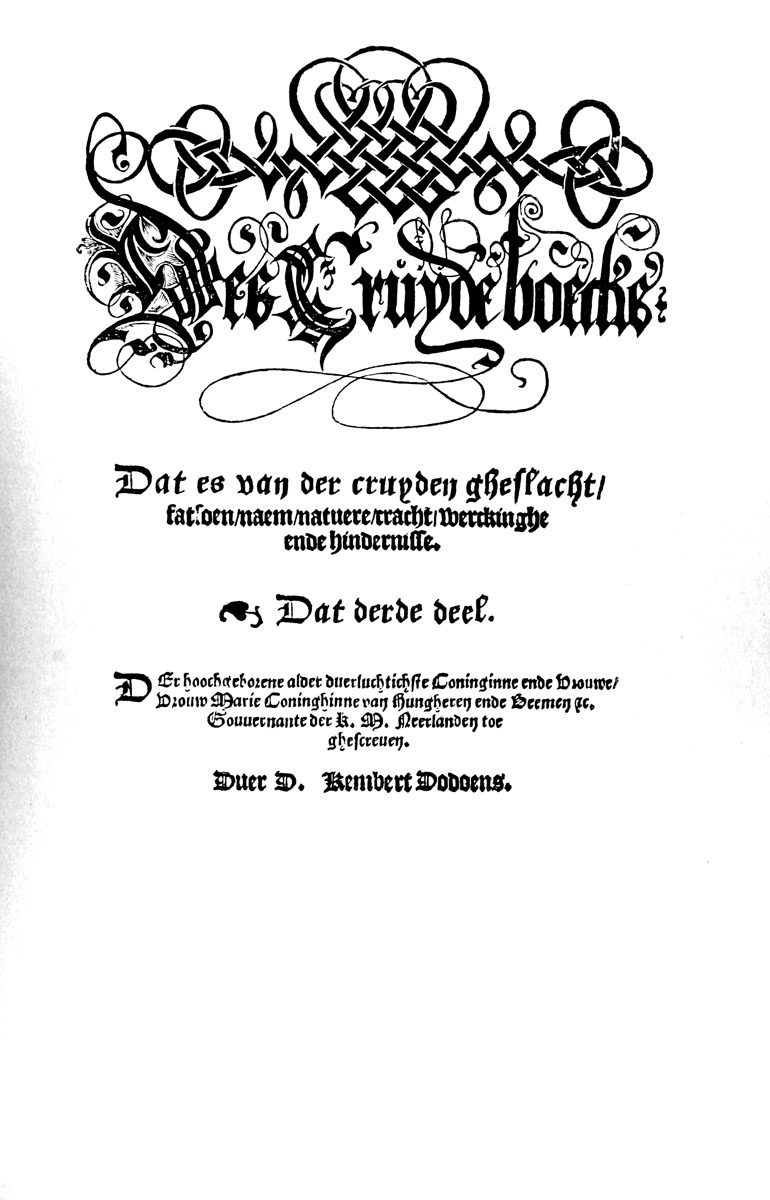 Des Cruydeboecks
Dat es van der cruyden gheslacht/
fatsoen/naem/natuere/cracht/werckinghe
ende hindernisse.
Dat derde deel.
DEr hoochgeborene alder duerluchtichste Coninginne ende Vrouwe/
Vrouw Marie Coninghinne van Hungheren ende Beemen &c.
Gouvernante der K. M. Neerlanden toe
ghescreven.
Duer D. Rembert Dodoens.